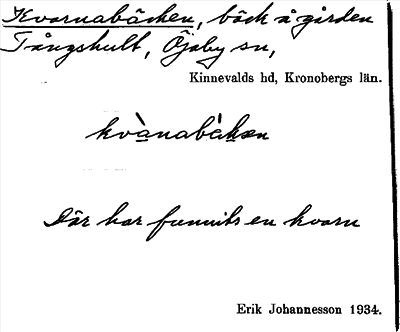 Kvarnabäcken, bäck å gården
Tångshult, Öjaby sn,
Kinnevalds hd, Kronobergs län.
kvànabàken
Där har funnits en kvarn
Erik Johannesson 1934.